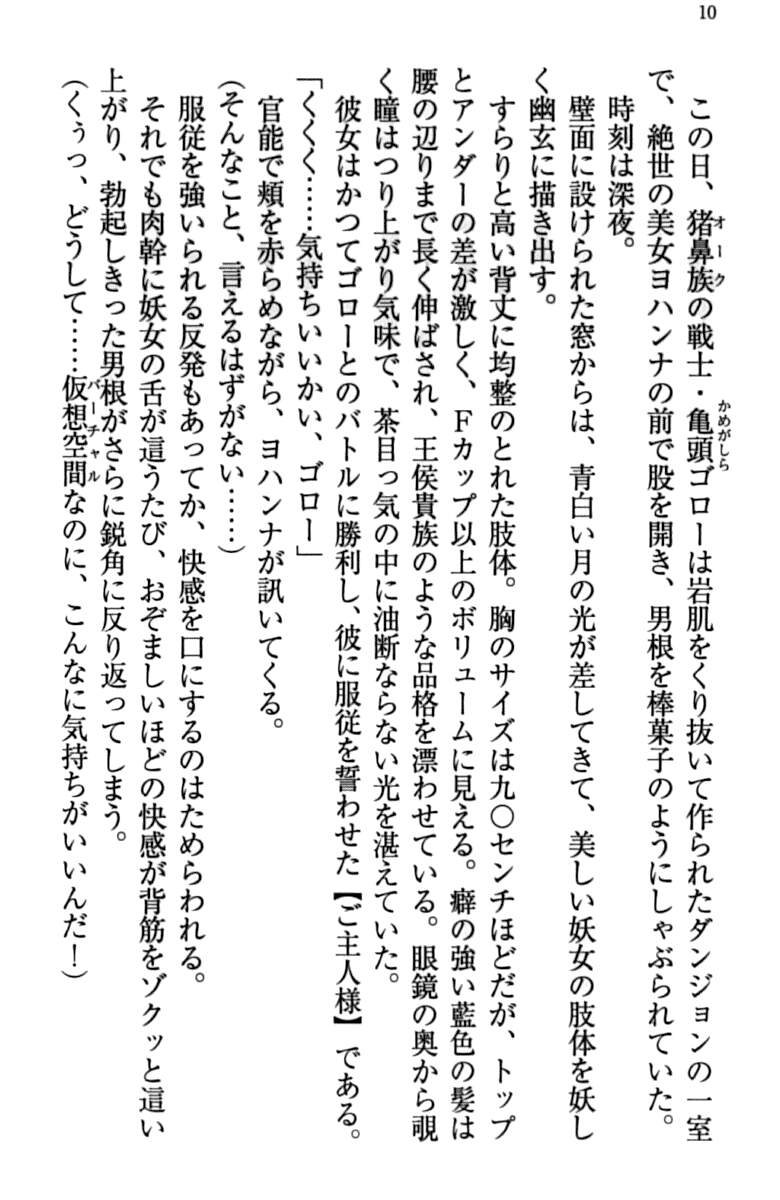 10
この日、猪鼻族の戦士・亀頭ゴローは岩肌をくり抜いて作られたダンジョンの一室
オーク
かめがしら
で、絶世の美女ヨハンナの前で股を開き、男根を棒菓子のようにしゃぶられていた。
時刻は深夜。
壁面に設けられた窓からは、青白い月の光が差してきて、美しい妖女の肢体を妖し
く幽玄に描き出す。
すらりと高い背丈に均整のとれた肢体。胸のサイズは九〇センチほどだが、トップ
とアンダーの差が激しく、Fカップ以上のボリュームに見える。癖の強い藍色の髪は
腰の辺りまで長く伸ばされ、王侯貴族のような品格を漂わせている。眼鏡の奥から覗
く瞳はつり上がり気味で、茶目っ気の中に油断ならない光を湛えていた。
彼女はかつてゴローとのバトルに勝利し、彼に服従を誓わせた【ご主人様】である。
「くくく……気持ちいいかい、ゴロー」
官能で頬を赤らめながら、ヨハンナが訊いてくる。
(そんなこと、言えるはずがない……)
服従を強いられる反発もあってか、快感を口にするのはためらわれる。
それでも肉幹に妖女の舌が這うたび、おぞましいほどの快感が背筋をゾクッと這い
上がり、勃起しきった男根がさらに鋭角に反り返ってしまう。
(くぅっ、どうして……仮想空間なのに、こんなに気持ちがいいんだ!)
バーチャル